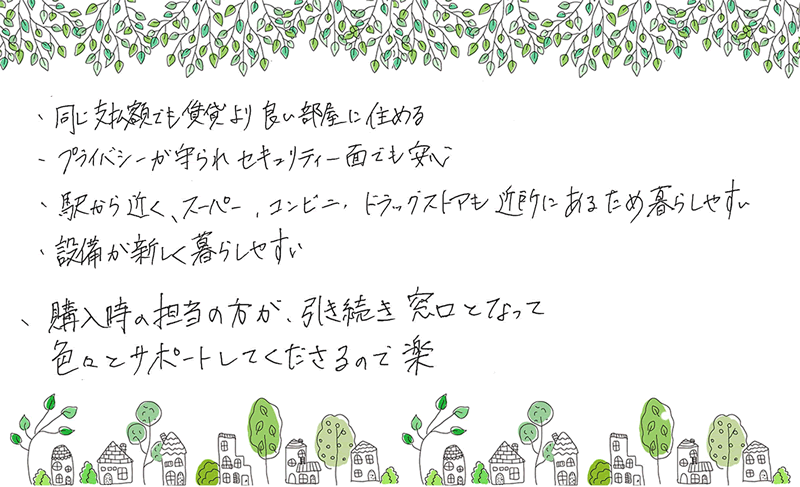 、同じ支払額でも賃貸より良い部屋に住める
、プライバシーが守られセキュリティー面でも安心
、駅から近く、スーパー、コンビニ、ドラッグストアも近所にあるため暮らしやすい
、設備が新しく暮らしやすい
、購入時の担当の方が、引き続き窓口となって
色々とサポートしてくださるので楽